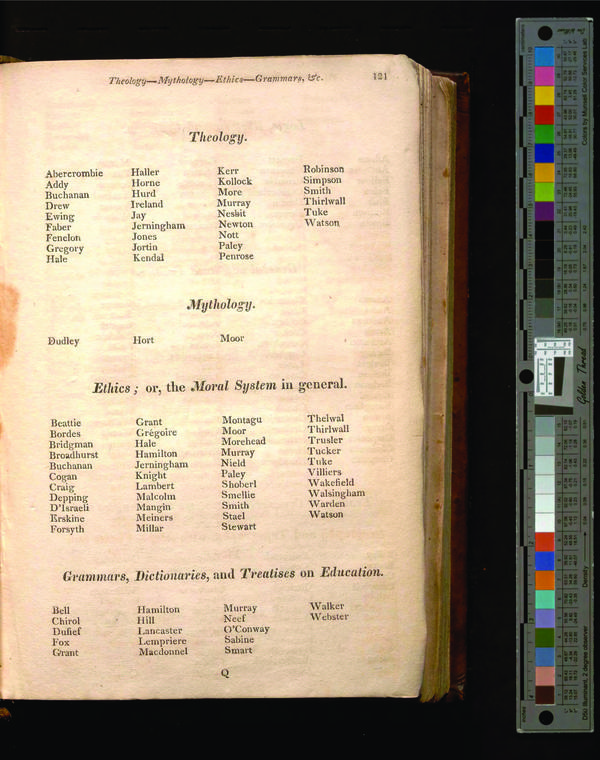 Theology—Mythology—Ethics—Grammars, &c. 121
Theology.
Abercrombie Haller Kerr Robinson
Addy Horne Kollock Simpson
Buchanan Hurd More Smith
Drew Ireland Murray Thirlwall
Ewing Jay Nesbit Tuke
Faber Jerningham Newton Watson
Fenelon Jones Nott
Gregory Jortin Paley
Hale Kendal Penrose
Mythology.
Dudley Hort Moor
Ethics; or, the Moral System in general.
Beattie Grant Montagu Thelwal
Bordes Grégoire Moor Thirlwall
Bridgman Hale Morehead Trusler
Broadhurst Hamilton Murray Tucker
Buchanan Jerningham Nield Tuke
Cogan Knight Paley Villiers
Craig Lambert Shoberl Wakefield
Depping Malcolm Smellie Walsingham
D'Israeli Mangin Smith Warden
Erskine Meiners Stael Watson
Forsyth Millar Stewart
Grammars, Dictionaries, and Treatises on Education.
Bell Hamilton Murray Walker
Chirol Hill Neef Webster
Dufief Lancaster O'Conway
Fox Lempriere Sabine
Grant Macdonnel Smart
Q
Colors by Munsell Color Services Lab
Golden Thread
Density
D50 Illuminant, 2 degree observer